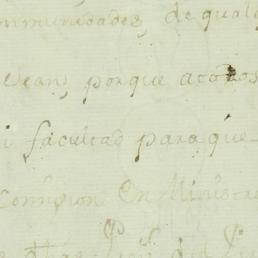 ommunidades, de qual
sean, porque a todos
i facultad para que
comision En Ministr